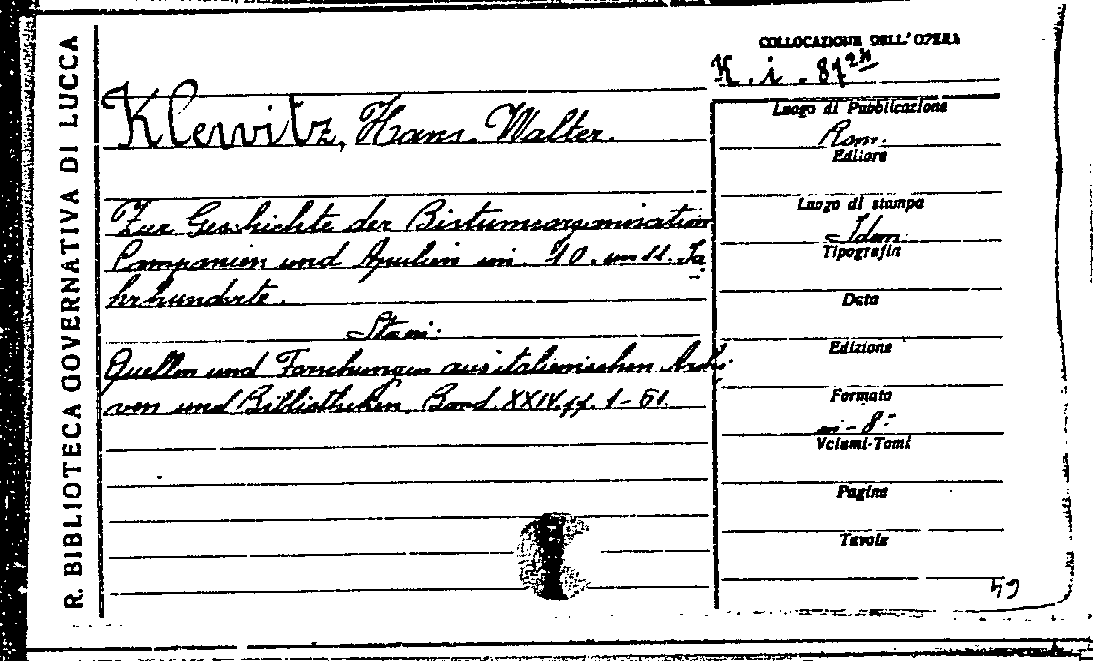 R. BIBLIOTECA GOVERNATIVA DI LUCCA
COLLOCAZIONE DELL'OPERA
K. i. 87
Klewitz, Hans Walter.
Zur Geschichte der Bistumsorganisation
Campanien und Apulien im 10. un 11. Ja
hrhunderte.
Quellen und Forschungen aus italienischen Archi
ven und Bibliotheken, Band XXIV. pp. 1-61.
Luogo di Pubblicazione
Rom.
Editore
Luogo di stampa
Idem.
Tipografia
Data
Edizione
Formato
in-8°
Volumi-Tomi
Pagine
Tavole